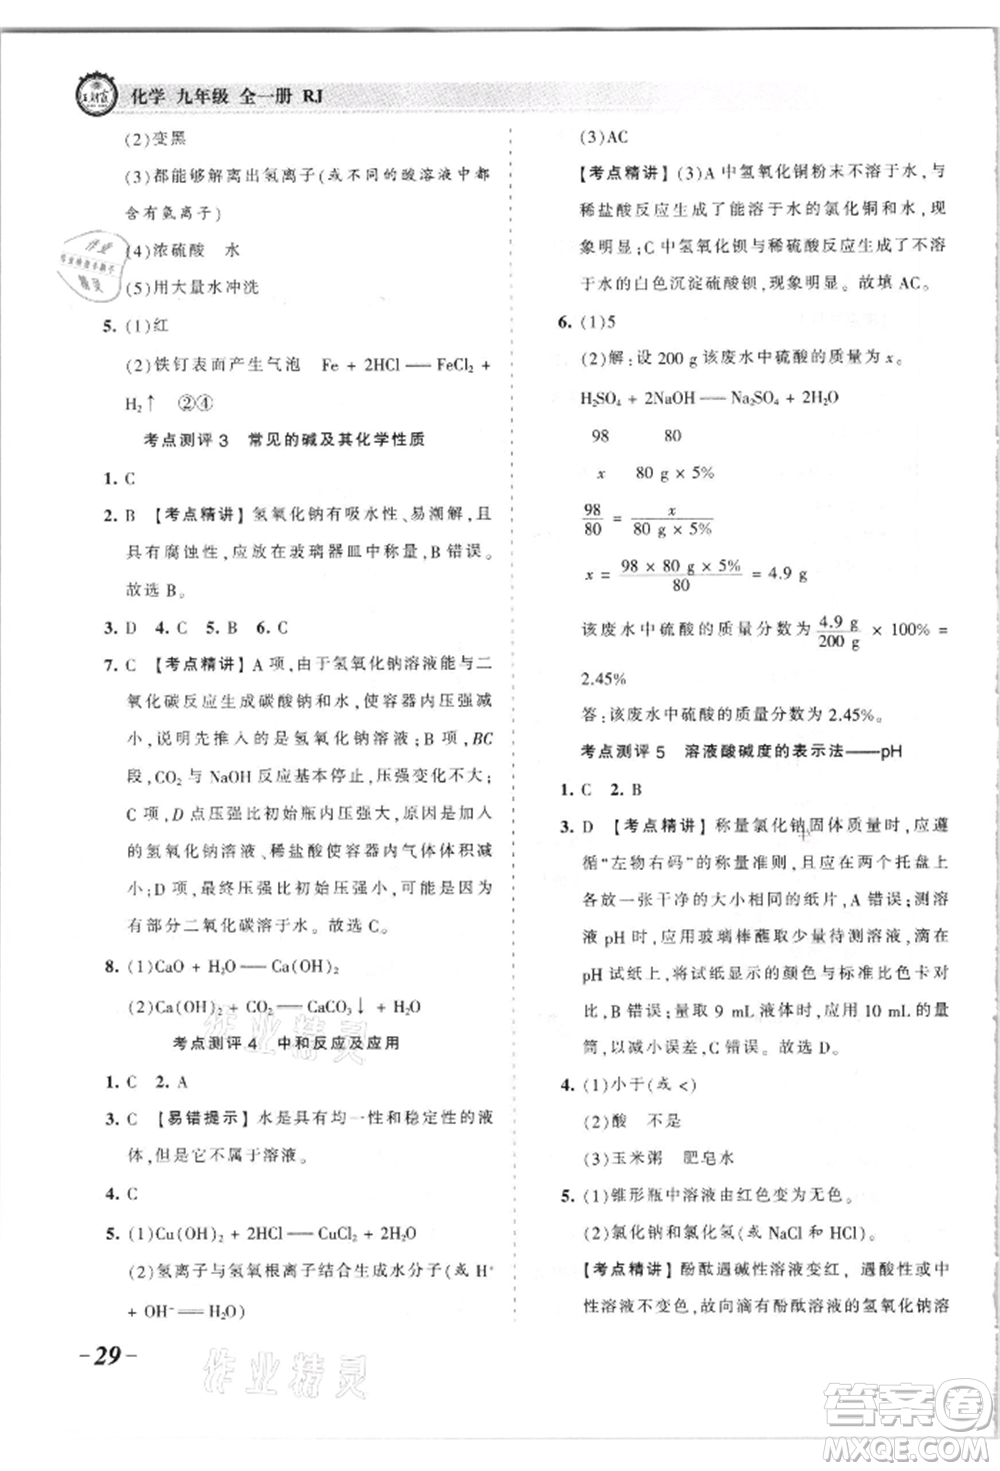 王朝霞
化学 九年级 全一册 RJ
(2)变黑
(3)都能够解离出氢离子(或不同的酸溶液中都
含有氢离子)
(4)浓硫酸 水
(5)用大量水冲洗
5. (1)红
(2)铁钉表面产生气泡 Fe + 2HCl══FeCl₂ +
H₂↑ ②④
考点测评3 常见的碱及其化学性质
1. C
2. B 【考点精讲】氢氧化钠有吸水性、易潮解,且
具有腐蚀性,应放在玻璃器皿中称量,B错误。
故选B。
3. D 4. C 5. B 6. C
7. C 【考点精讲】A项,由于氢氧化钠溶液能与二
氧化碳反应生成碳酸钠和水,使容器内压强减
小,说明先推入的是氢氧化钠溶液;B项,BC
段,CO₂与NaOH反应基本停止,压强变化不大;
C项,D点压强比初始瓶内压强大,是由于推入
的氢氧化钠溶液、稀盐酸使容器内气体体积减
小;D项,最终压强与初始压强几乎相同,因为
有部分二氧化碳溶于水。故选C。
8. (1)CaO + H₂O══Ca(OH)₂
(2)Ca(OH)₂ + CO₂══CaCO₃↓ + H₂O
考点测评4 中和反应及应用
1. C 2. A
3. C 【易错提示】水是具有均一性和稳定性的液
体,但是它不属于溶液。
4. C
5. (1)Cu(OH)₂ + 2HCl══CuCl₂ + 2H₂O
(2)氢离子与氢氧根离子结合生成水分子(或H⁺
+ OH⁻══H₂O)
- 29 -
(3)AC
【考点精讲】(3)A中氢氧化铜粉末不溶于水,与
稀盐酸反应生成了能溶于水的氯化铜和水,现
象明显;C中氢氧化钡与稀硫酸反应生成不溶
于水的白色沉淀硫酸钡,现象明显。故填AC。
6. (1)5
(2)解:设200 g该废水中硫酸的质量为x。
H₂SO₄ + 2NaOH══Na₂SO₄ + 2H₂O
98 80
x 80 g × 5%
98/80 = x/(80 g × 5%)
x = (98 × 80 g × 5%)/80 = 4.9 g
该废水中硫酸的质量分数为 4.9 g/200 g × 100% =
2.45%
答:该废水中硫酸的质量分数为2.45%。
考点测评5 溶液酸碱度的表示法——pH
1. C 2. B
3. D 【考点精讲】称量氯化钠固体质量时,应遵
循“左物右码”的称量准则,且应在两个托盘上
各放一张干净的大小相同的纸片,A错误;测溶
液pH时,应用玻璃棒蘸取少量待测溶液,滴在
pH试纸上,将试纸显示的颜色与标准比色卡对
比,B错误;量取9 mL液体时,应用10 mL的量
筒,以减小误差,C错误。故选D。
4. (1)小于(或<)
(2)酸 不是
(3)玉米粥 肥皂水
5. (1)锥形瓶中溶液由红色变为无色。
(2)氯化钠和氯化氢(或NaCl和HCl)。
【考点精讲】酚酞遇碱性溶液变红,遇酸性或中
性溶液不变色,故向滴有酚酞溶液的氢氧化钠溶
作业精灵
作业精灵
答案圈
MXQE.COM